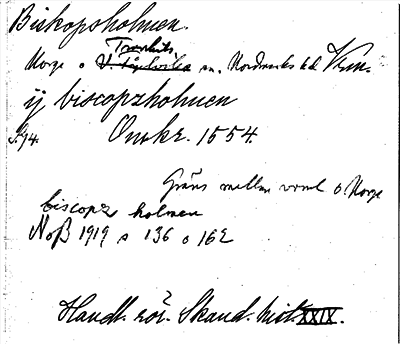 Biskopsholmen.
Trankils
Norge o V. Fågelviks sn. Nordmarks hd Vrm.
ij biscopzholmen
S. 94. Omkr. 1554.
Gräns mellan Vrml o. Norge
biscopz holmen
NoB 1919 s 136 o 162
Handl. rör. Skand. hist. XXIX.